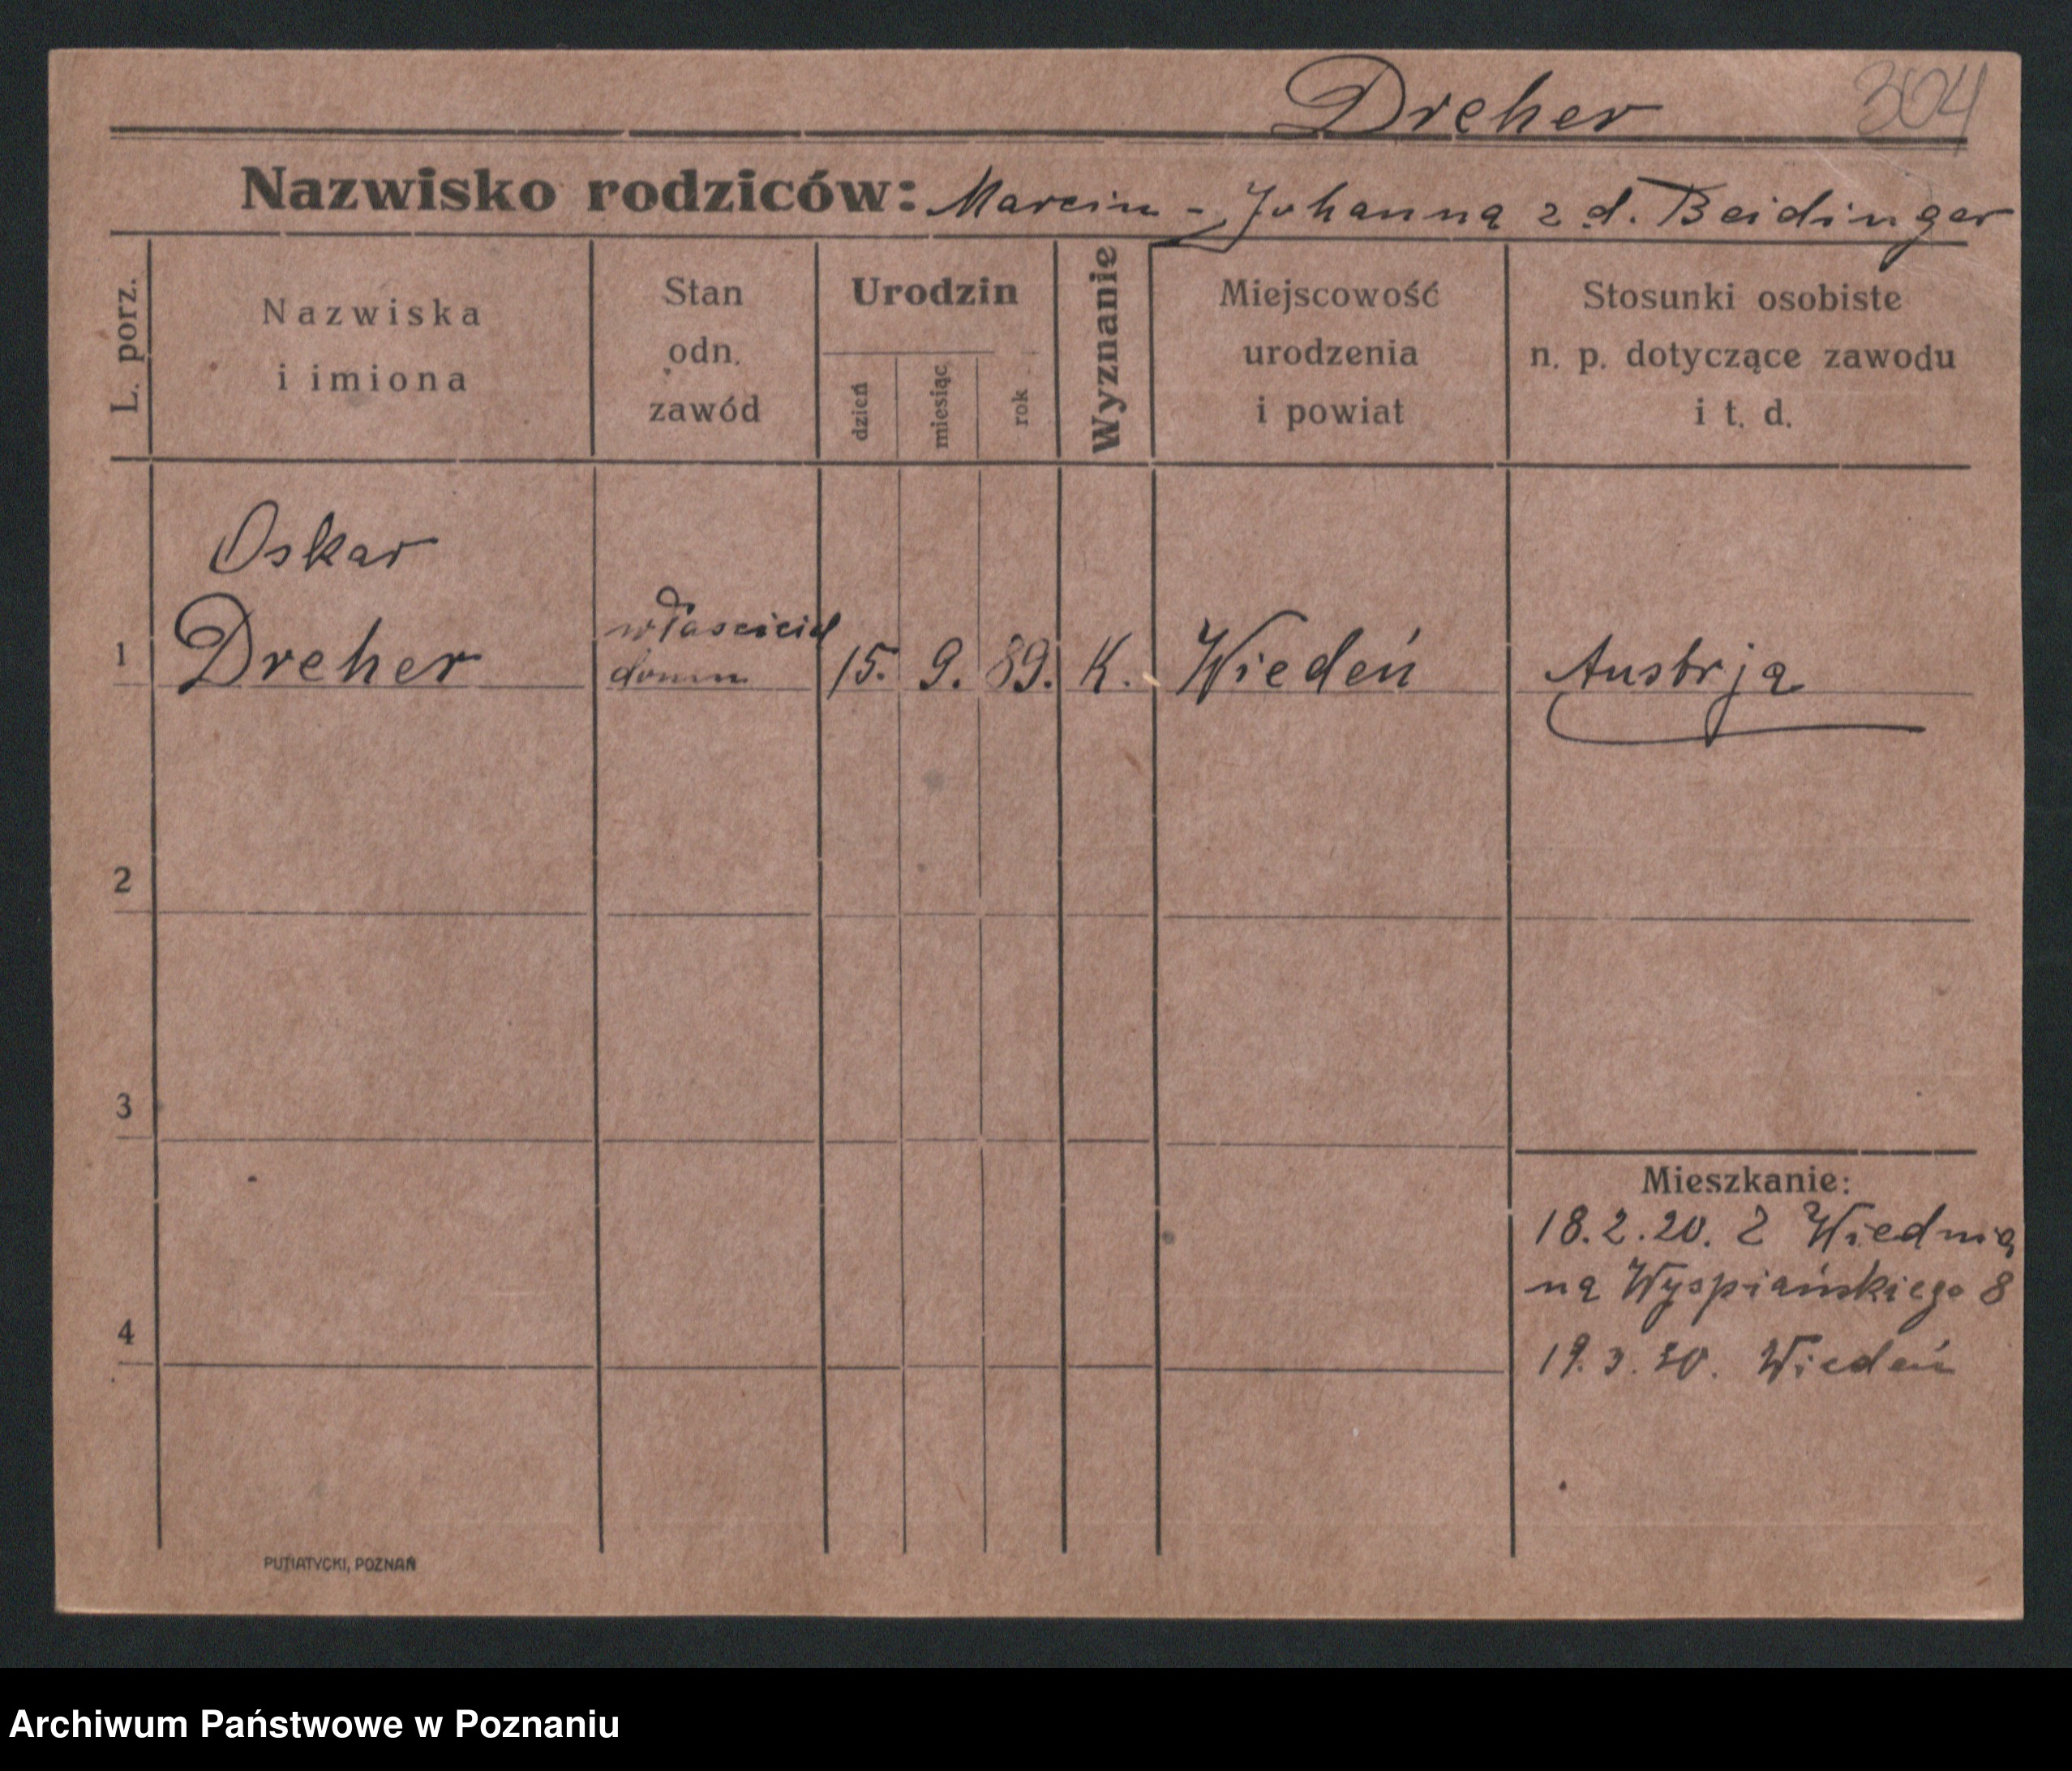 Dreher 304
Nazwisko rodziców: Marcin - Johanna z d. Beidinger
L. porz.
Nazwiska
i imiona
Stan
odn.
zawód
Urodzin
dzień
miesiąc
rok
Wyznanie
Miejscowość
urodzenia
i powiat
Stosunki osobiste
n. p. dotyczące zawodu
i t. d.
Oskar
1 Dreher
właściciel
domu
15. 9. 89. K. Wiedeń Austrja
2
3
4
Mieszkanie:
18.2.20. Z Wiednia
na Wyspiańskiego 8
19.3. Wiedeń
PUTIATYCKI, POZNAŃ
Archiwum Państwowe w Poznaniu